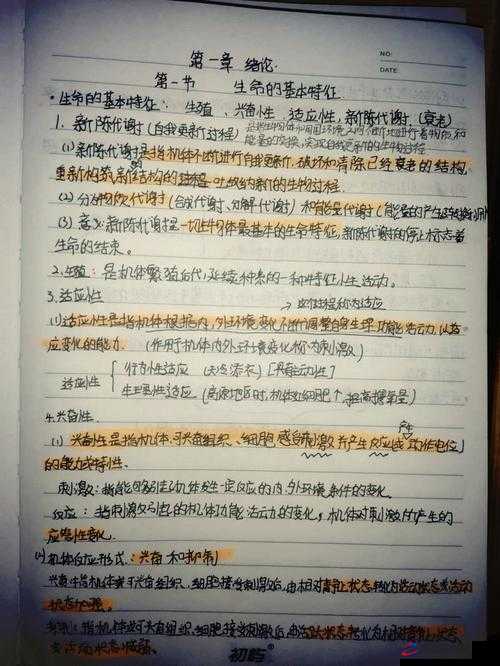 NO:
DATE:
第一章 绪论.
第一节 生命的基本特征
·生命的基本特征: 生殖, 兴奋性, 适应性, 新陈代谢. (衰老)
1. 新陈代谢 (自我更新过程)
(1) 新陈代谢是指机体不断进行自我更新, 破坏和清除已经衰老的结构,
重新构筑新结构的 吐故纳新的生物过程.
(2) 分为物质代谢 (合成代谢、分解代谢) 和能量代谢 (能量的产生
(3) 意义: 新陈代谢是一切生物体最基本的生命特征, 新陈代谢的停止标志着
生命的结束。
2. 生殖: 是机体繁殖后代, 延续种系的一种特征性活动。
3. 适应性
→ 此过程称为适应
(1) 适应性是指机体根据内, 外环境变化不断调整自身生理功能活动, 以适
应变化的能力. (作用机体内外环境变化称为刺激)
适应性
行为性适应 (天冷添衣) [具有能动性]
生理性适应 (高原地区时, 机体红细胞↑, 提高携氧量)
4. 兴奋性.
产生
(1) 兴奋性是指机体、可兴奋组织、细胞感自刺激并产生反应或动作电位
的能力或特性.
刺激: 指能够引起机体发生一定反应的内、外环境条件的变化.
反应: 指刺激引起的机体功能活动的变化, 机体对刺激所产生的
应答性变化.
(2) 机体反应形式: 兴奋和抑制
兴奋: 指机体或可兴奋组织、细胞接受刺激后, 由相对静止状态转化为活动状态或活动
状态加强.
抑制: 指机体或可兴奋组织、细胞接受刺激后, 由活跃状态转化为相对静止状态,
或活动状态减弱.
初屿